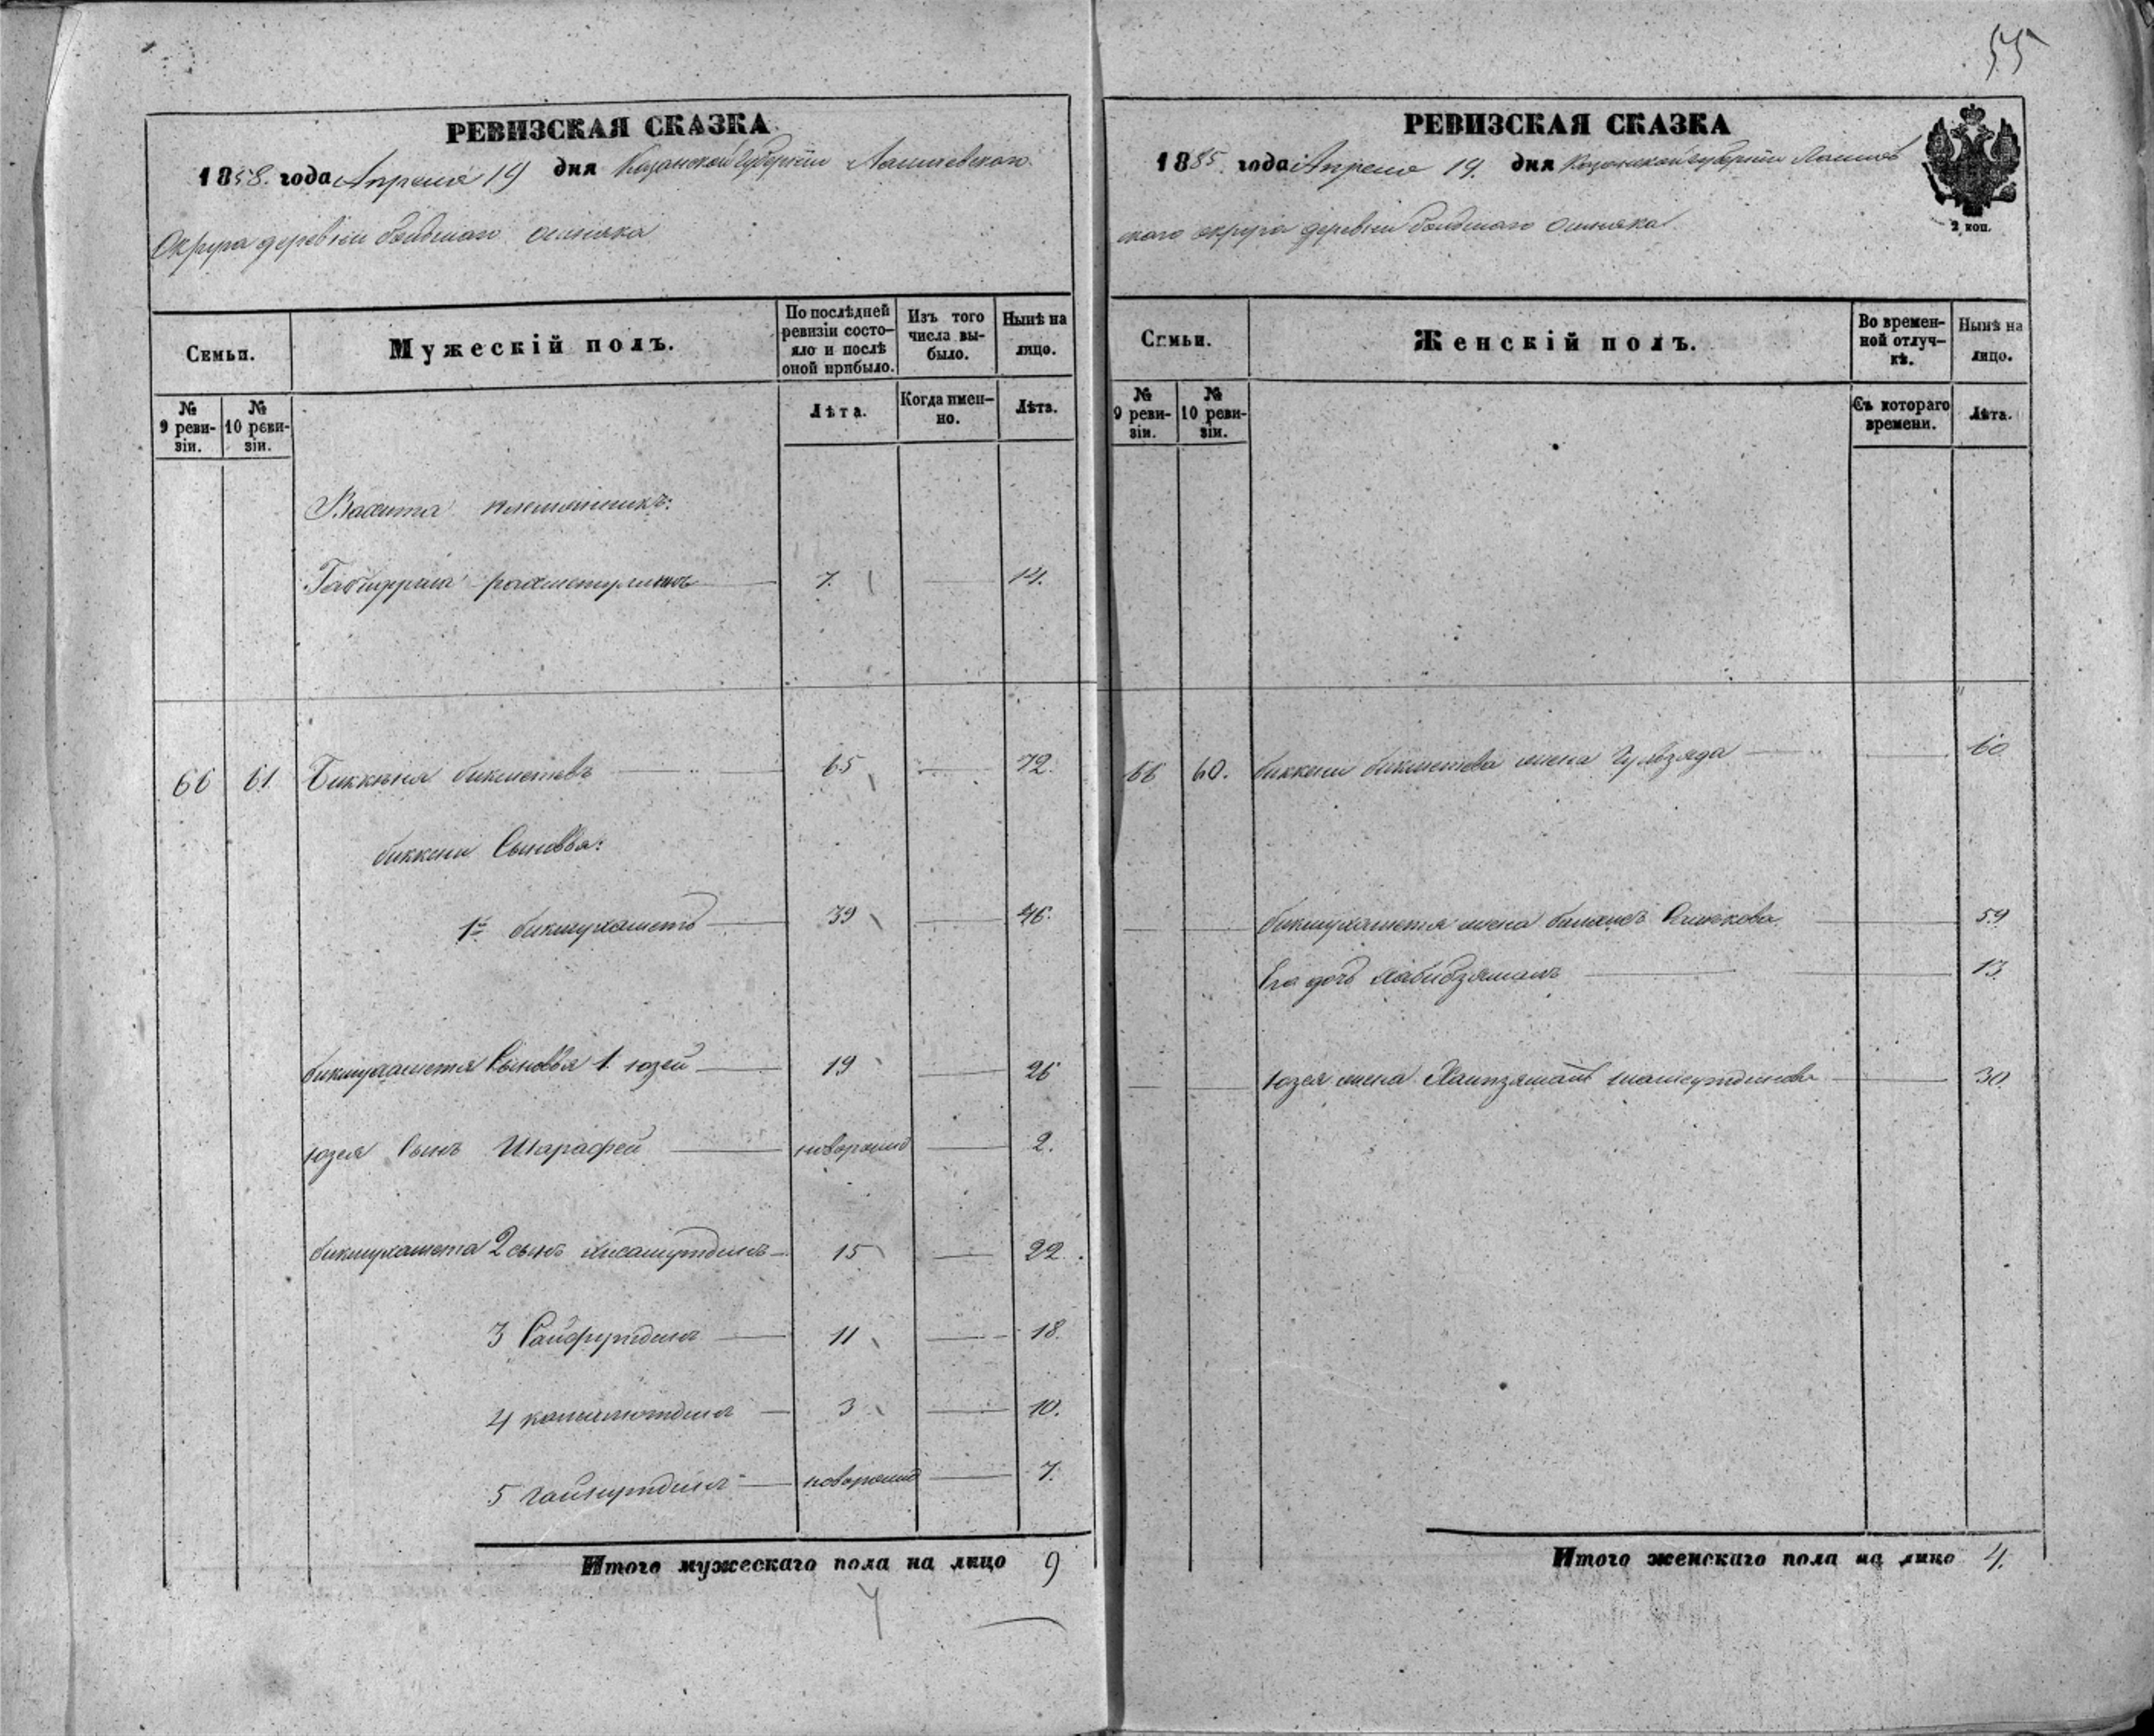 55
РЕВИЗСКАЯ СКАЗКА
1858. года Апреля 19 дня Казанской Губернии Лаишевского
Округа деревни большаго осиняка
Семьи.
Мужескій полъ.
По послѣдней ревизіи состояло и послѣ оной прибыло.
Изъ того числа выбыло.
Нынѣ на лицо.
№ 9 ревизіи.
№ 10 ревизіи.
Лѣта.
Когда именно.
Лѣта.
Вахита племянникъ:
рахметулинъ 7. 14.
66 61 Биккеня бикметевъ 65 72.
биккени Сыновья:
1й бикмухаметъ 39 46.
бикмухаметя Сыновья 1. юзей 19 26
юзея Сынъ Шарафей новорожд 2.
бикмухамета 2 сынъ хисамутдинъ 15 22.
3 Сайфутдинъ 11 18.
4 камалютдинъ 3 10.
5 гайнутдинъ новорожд 7.
Итого мужескаго пола на лицо 9
РЕВИЗСКАЯ СКАЗКА
1885. года Апреля 19. дня Казанской губернии Лаишев
скаго округа деревни большаго Осиняка
2 коп.
Семьи.
Женскій полъ.
Во временной отлучкѣ.
Нынѣ на лицо.
№ 9 ревизіи.
№ 10 ревизіи.
Съ котораго времени.
Лѣта.
66 60. биккени бикметева жена Гульзяда 60
бикмухаметя жена 59
Его дочь хабибзямалъ 13
юзея жена 30.
Итого женскаго пола на лицо 4.